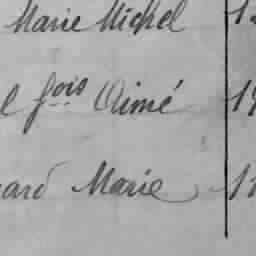 Marie Michel 1
l fois Aimé 19
ard Marie 1